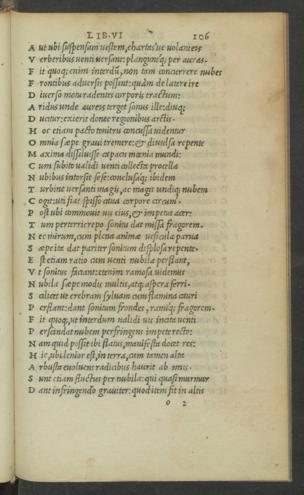 LIB·VI 106
A ut ubi suspensam uestem, chartasue uolanteis
V erberibus uenti uersant: planguntq; per auras.
F it quoq; enim interdũ, non tam concurrere nubes
F rontibus aduersis possint: quàm de latere ire
D iuerso motu radentes corporis tractum:
A ridus unde aureis terget sonus ille: diuq;
D ucitur: exierit donec regionibus arctis.
H oc etiam pacto tonitru concussa uidentur
O mnia sæpe graui tremere: & diuulsa repente
M axima dissiluisse capacis mœnia mundi:
C um subito ualidi uenti collecta procella
N ubibus intorsit sese: conclusaq; ibidem
T urbine uersanti magis, ac magis undiq; nubem
C ogit: uti fiat spisso caua corpore circum.
P ost ubi commouit uis eius, & impetus acer:
T um perterricrepo sonitu dat missa fragorem.
N ec mirum, cum plena animæ uesicula parua
S æpe ite dat pariter sonitum displosa repente.
E st etiam ratio cum uenti nubila perflant,
V t sonitus faciant: etenim ramosa uidemus
N ubila sæpe modis multis, atq; aspera ferri.
S cilicet ut crebram syluam cum flamina cauri
P erflant: dant sonitum frondes, ramiq; fragorem.
F it quoq; ut interdum ualidi uis incita uenti
P erscindat nubem perfringens impete recto:
N am quid possit ibi flatus, manifesta docet res:
H ic, ubi lenior est, in terra, cum tamen alta
A rbusta euoluens radicibus haurit ab imis.
S unt etiam fluctus per nubila: qui quasi murmur
D ant infringendo grauiter: quod item fit in altis
o 2